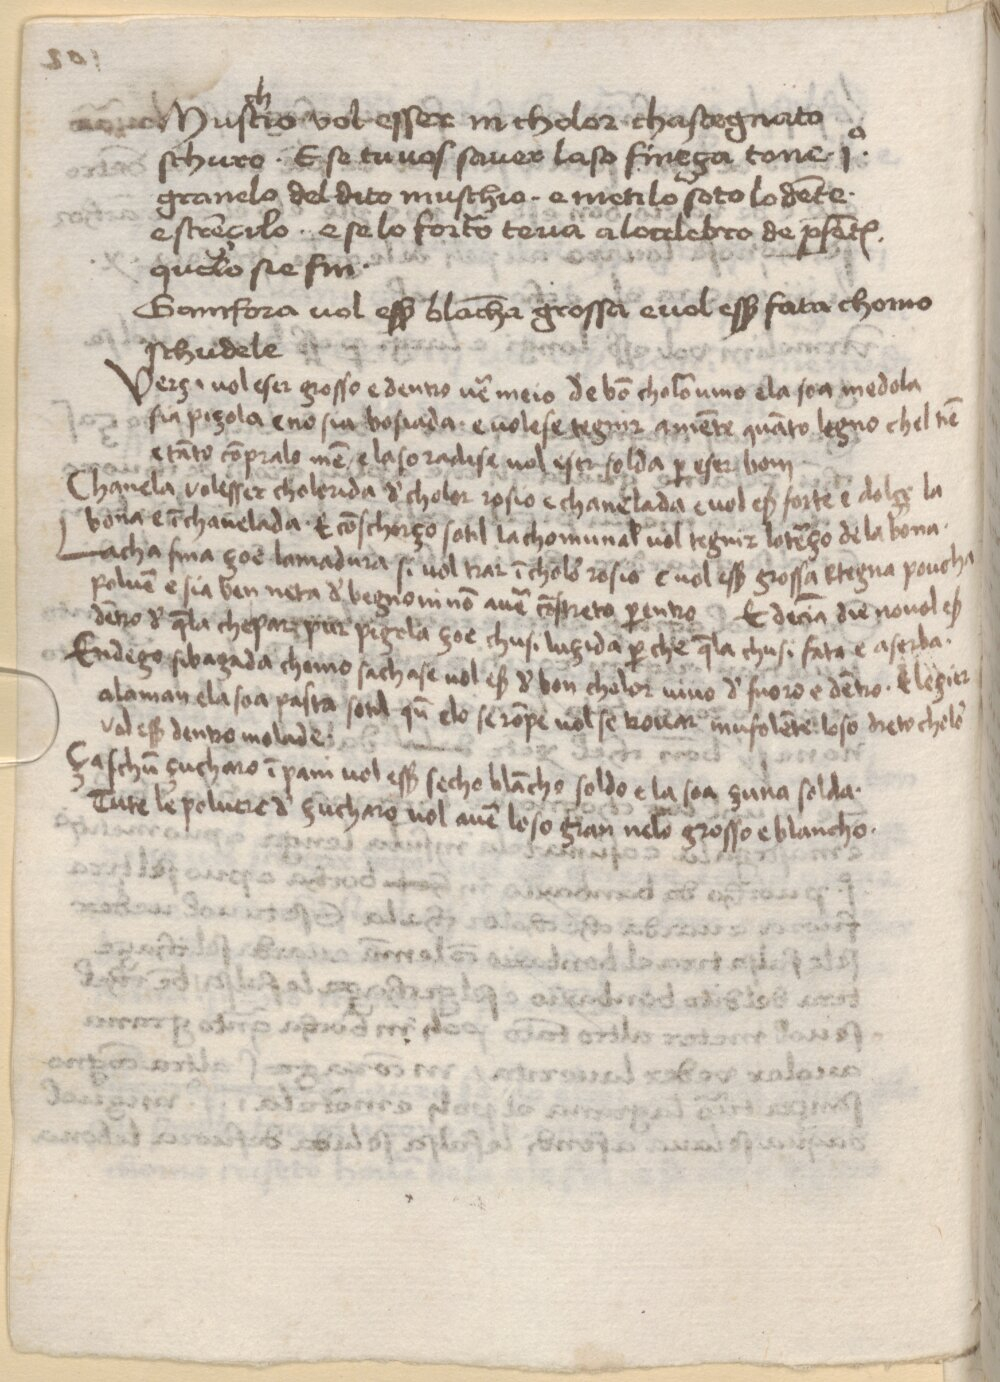 Muschio vol esser in cholor chastegnato
schuro · E se tu vos saver la so fineça tone · i° ·
granelo del dito muschio · e metilo soto lo dēte ·
e strēçilo · e se lo fortō teva alo celebro de
quelo sie fin ·
Gamfora vol esser blācha grossa e vol esser fata chomo
schudele
Verçi vol eser grosso e dentro meio de bō cholō vino e la soa medola
sia piçola e no sia bosiada · e volese tegnir amēte quāto legno chel tiē
e tāto cōpralo mē e la so radise vol eser solda p eser bom
Chanela vol esser cholorida d' cholor rosio e chanelada e vol esser forte e dolçe la
bona e ī chanelada · E cō schorço sotil la chomunal vol tegnir lo terço de la bona ·
Lacha fina çoe lamadura si vol trar ī cholō rosio e vol esser grossa e tegna poucha
polvē e sia ben neta d' begnoni nō avē cōstreto p entro E deciā die no vol esser
dētro d' qla che par pur piçola çoe chusi luçida p che qla chusi fata e aserba ·
Endego sibagada chomo sachase vol esser d' bon cholor vivo d' fuoro e dētro · E legier
ala man e la soa pasta sotil qn elo se rōpe vol se trovar mufolēte loso dreto cholō
vol esser dentro molade ·
Çaschū çucharo ī pani vol esser secho blācho soldo e la soa çuna solda ·
Tute le polvere d' çucharo vol avē lo so gran nelo grosso e blancho ·